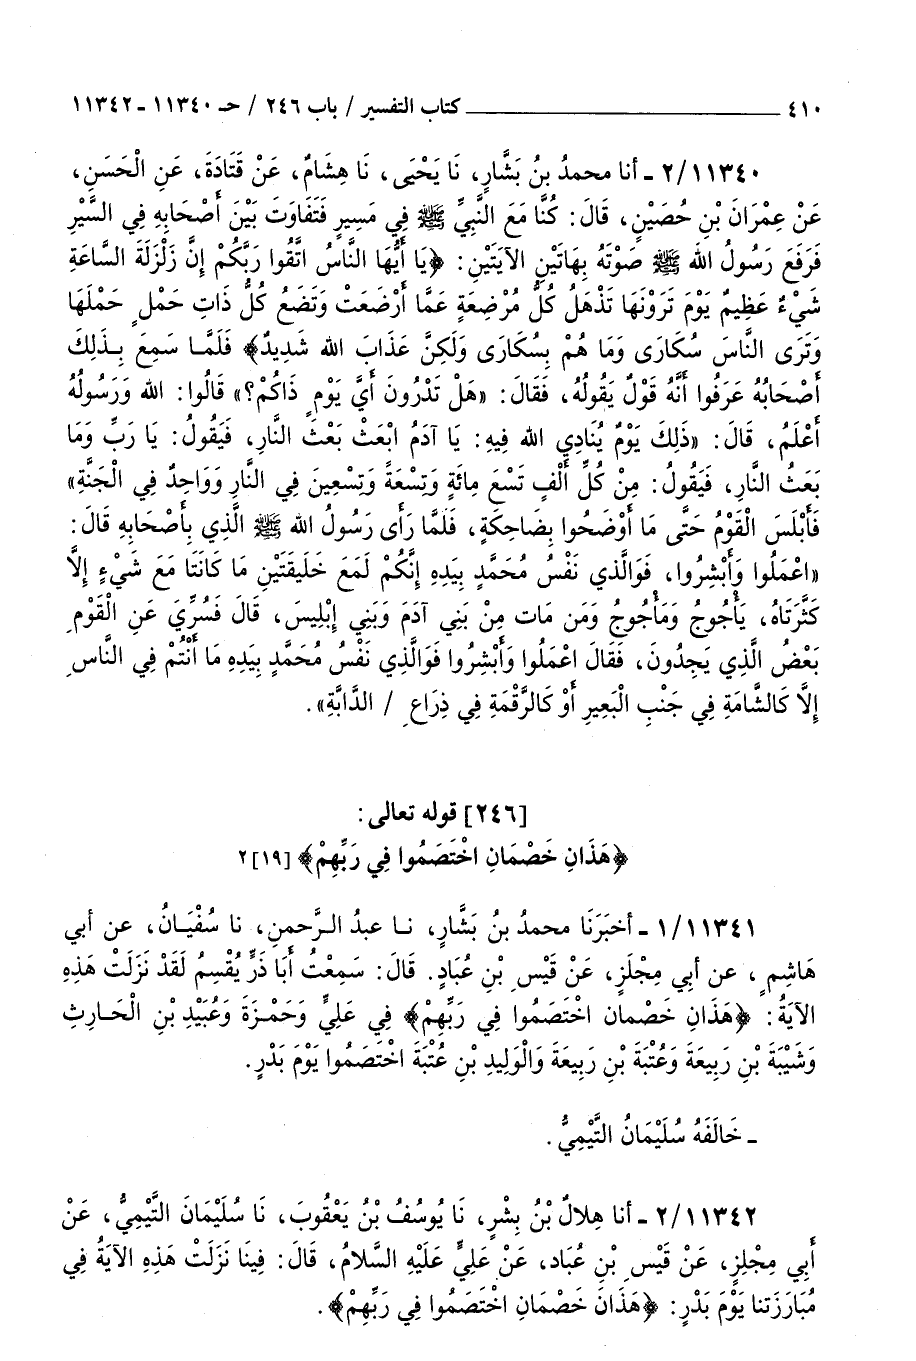 ٤١٠ ــــــــــــــــــــ كتاب التفسير / باب ٢٤٦ / حـ ١١٣٤٠ - ١١٣٤٢
٢/١١٣٤٠ - أنا محمدُ بنُ بَشَّارٍ، نَا يَحْيَى، نَا هِشَامٌ، عَنْ قَتَادَةَ، عَنِ الْحَسَنِ،
عَنْ عِمْرَانَ بْنِ حُصَيْنٍ، قَالَ: كُنَّا مَعَ النَّبِيِّ ﷺ فِي مَسِيرٍ فَتَفَاوَتَ بَيْنَ أَصْحَابِهِ فِي السَّيْرِ
فَرَفَعَ رَسُولُ الله ﷺ صَوْتَهُ بِهَاتَيْنِ الآيَتَيْنِ: ﴿يَا أَيُّهَا النَّاسُ اتَّقُوا رَبَّكُمْ إِنَّ زَلْزَلَةَ السَّاعَةِ
شَيْءٌ عَظِيمٌ يَوْمَ تَرَوْنَهَا تَذْهَلُ كُلُّ مُرْضِعَةٍ عَمَّا أَرْضَعَتْ وَتَضَعُ كُلُّ ذَاتِ حَمْلٍ حَمْلَهَا
وَتَرَى النَّاسَ سُكَارَى وَمَا هُمْ بِسُكَارَى وَلَكِنَّ عَذَابَ الله شَدِيدٌ﴾ فَلَمَّا سَمِعَ بِذَلِكَ
أَصْحَابُهُ عَرَفُوا أَنَّهُ قَوْلٌ يَقُولُهُ، فَقَالَ: «هَلْ تَدْرُونَ أَيَّ يَوْمٍ ذَاكُمْ؟» قَالُوا: الله وَرَسُولُهُ
أَعْلَمُ، قَالَ: «ذَلِكَ يَوْمٌ يُنَادِي الله فِيهِ: يَا آدَمُ ابْعَثْ بَعْثَ النَّارِ، فَيَقُولُ: يَا رَبِّ وَمَا
بَعَثُ النَّارِ، فَيَقُولُ: مِنْ كُلِّ أَلْفٍ تَسْعَ مِائَةٍ وَتِسْعَةً وَتِسْعِينَ فِي النَّارِ وَوَاحِدٌ فِي الْجَنَّةِ»
فَأَبْلَسَ الْقَوْمُ حَتَّى مَا أَوْضَحُوا بِضَاحِكَةٍ، فَلَمَّا رَأَى رَسُولُ الله ﷺ الَّذِي بِأَصْحَابِهِ قَالَ:
«اعْمَلُوا وَأَبْشِرُوا، فَوَالَّذي نَفْسُ مُحَمَّدٍ بِيَدِهِ إِنَّكُمْ لَمَعَ خَلِيقَتَيْنِ مَا كَانَتَا مَعَ شَيْءٍ إِلاَّ
كَثَّرَتَاهُ، يَأْجُوجُ وَمَأْجُوجُ وَمَن مَات مِنْ بَنِي آدَمَ وَبَنِي إِبْلِيسَ، قَالَ فَسُرِّيَ عَنِ الْقَوْمِ
بَعْضُ الَّذي يَجِدُونَ، فَقَالَ اعْمَلُوا وَأَبْشِرُوا فَوَالَّذِي نَفْسُ مُحَمَّدٍ بِيَدِهِ مَا أَنْتُمْ فِي النَّاسِ
إِلاَّ كَالشَّامَةِ فِي جَنْبِ الْبَعِيرِ أَوْ كَالرَّقْمَةِ فِي ذِرَاعِ / الدَّابَّةِ».
[٢٤٦] قوله تعالى:
﴿هَذَانِ خَصْمَانِ اخْتَصَمُوا فِي رَبِّهِمْ﴾ [١٩]٢
١/١١٣٤١ - أخبَرَنَا محمدُ بنُ بَشَّارٍ، نـا عبدُ الـرَّحمنِ، نا سُفْيَـانُ، عن أبي
هَاشِمٍ، عن أبي مِجْلَزٍ، عَنْ قَيْسِ بْنِ عُبَادٍ. قَالَ: سَمِعْتُ أَبَا ذَرٍّ يُقْسِمُ لَقَدْ نَزَلَتْ هَذِهِ
الآيَةُ: ﴿هَذَانِ خَصْمان اخْتَصَمُوا فِي رَبِّهِمْ﴾ فِي عَلِيٍّ وَحَمْـزَةَ وَعُبَيْدِ بْنِ الْحَـارِثِ
وَشَيْبَةَ بْنِ رَبِيعَةَ وَعُتْبَةَ بْنِ رَبِيعَةَ وَالْوَلِيدِ بْنِ عُتْبَةَ اخْتَصَمُوا يَوْمَ بَدْرٍ.
- خَالَفَهُ سُلَيْمَانُ التَّيْمِيُّ.
٢/١١٣٤٢ - أنا هِلالُ بْنُ بِشْرٍ، نَا يُوسُفُ بْنُ يَعْقُوبَ، نَا سُلَيْمَانَ التَّيْمِيُّ، عَنْ
أَبِي مِجْلِزٍ، عَنْ قَيْسِ بْنِ عُبَاد، عَنْ عَلِيٍّ عَلَيْهِ السَّلامُ، قَالَ: فِينَا نَزَلَتْ هَذِهِ الآيَةُ فِي
مُبَارَزَتنا يَوْمَ بَدْرٍ: ﴿هَذَانَ خَصْمَانِ اخْتَصَمُوا فِي رَبِّهِمْ﴾.